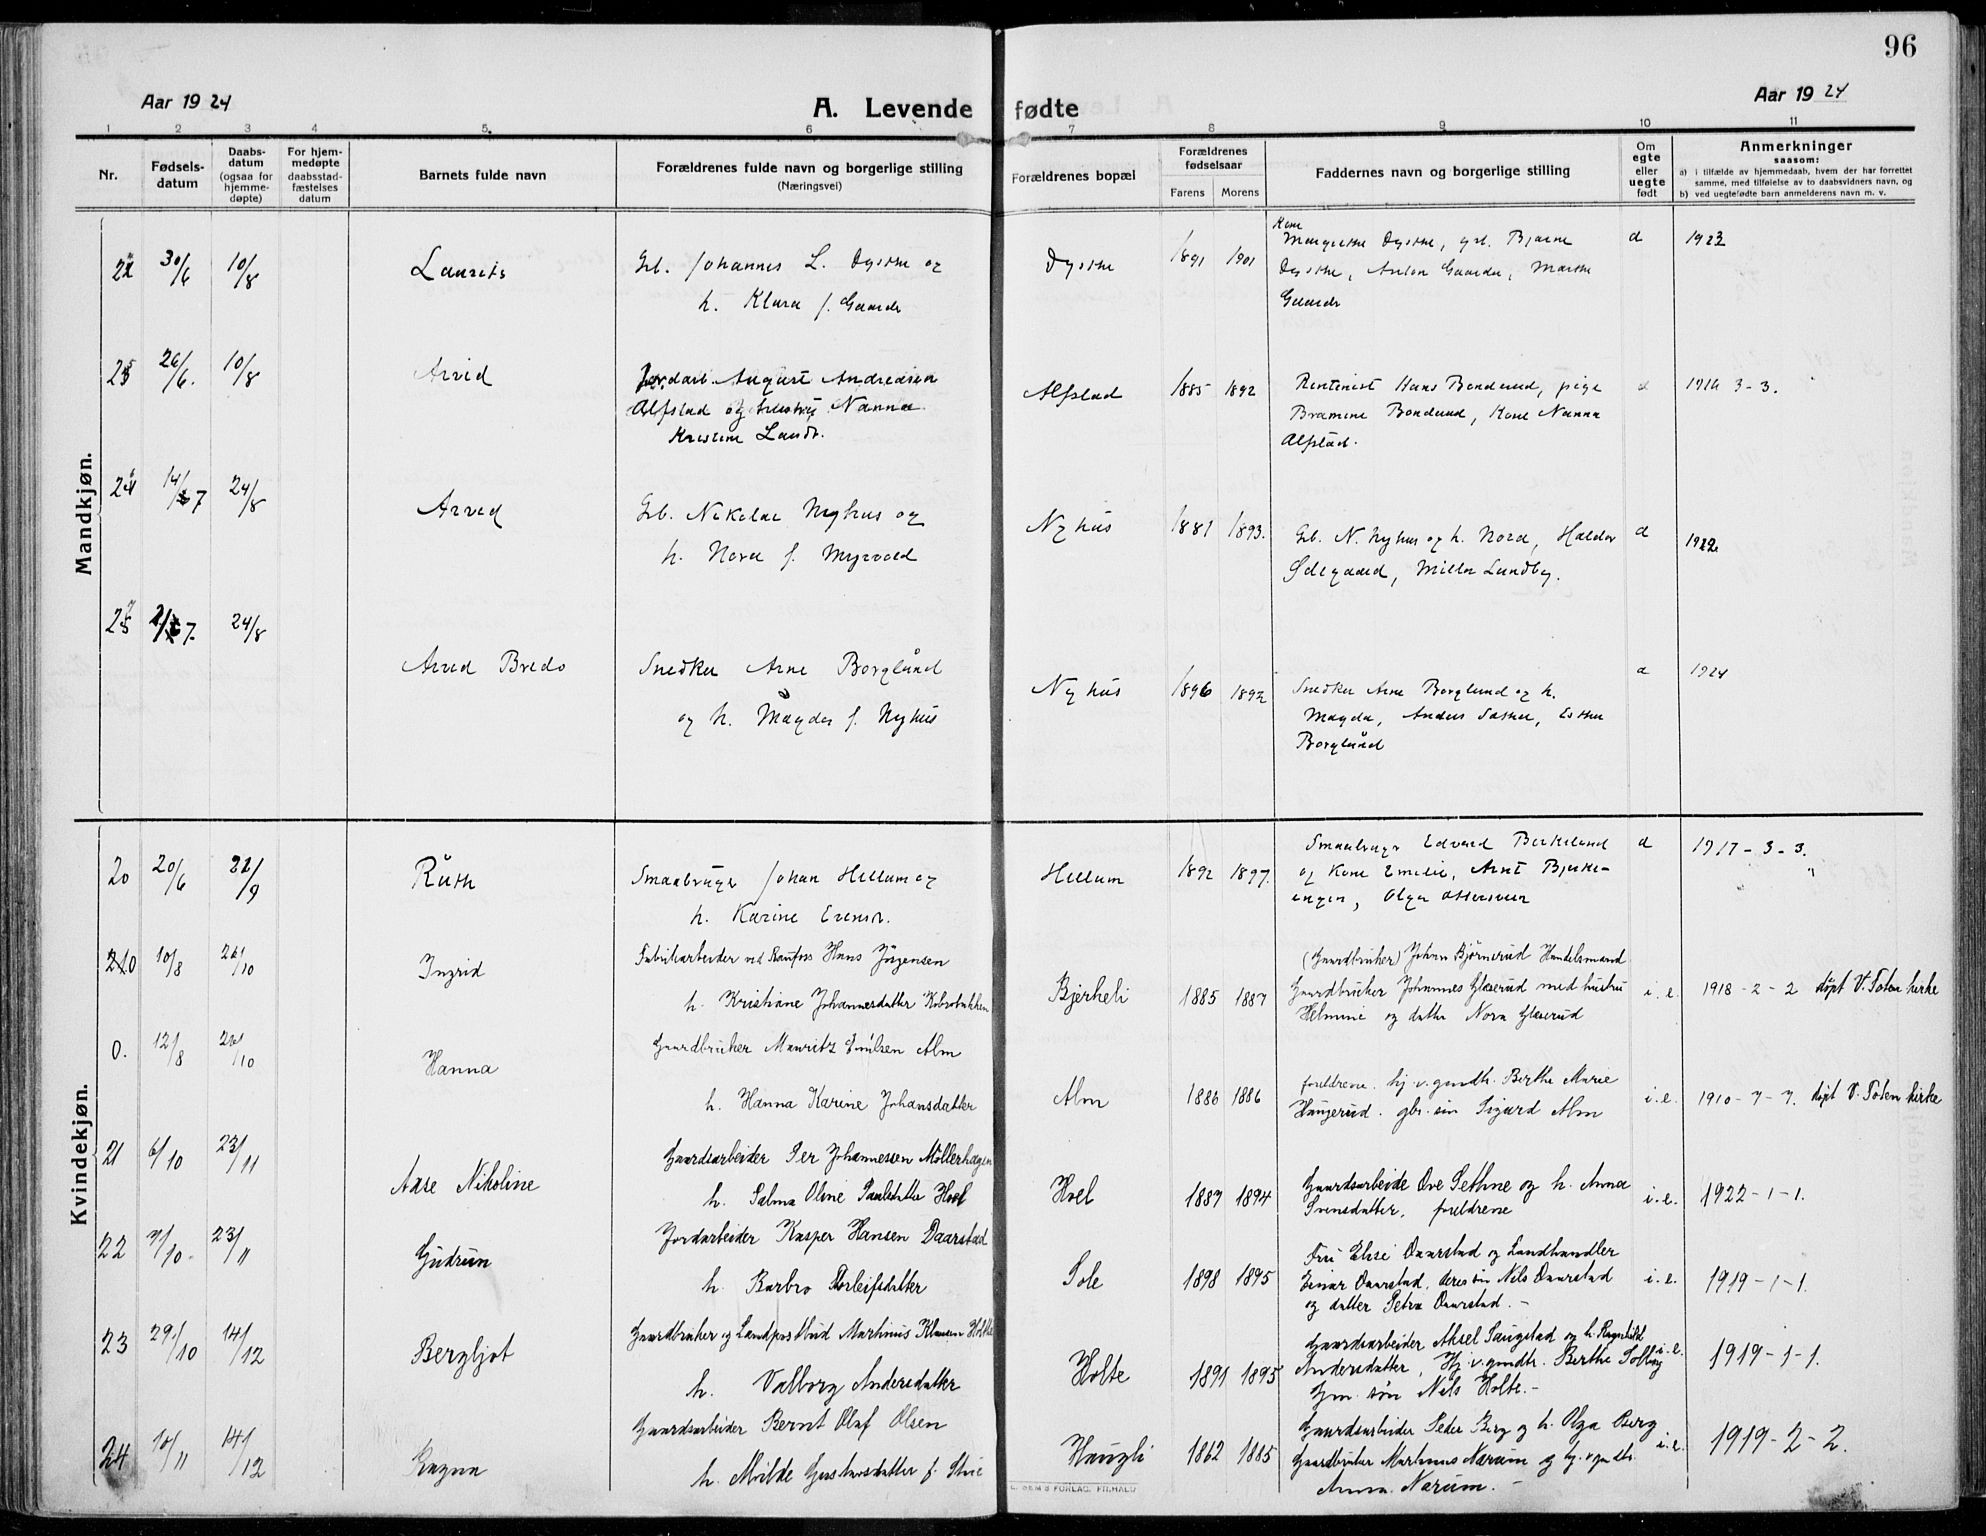 96
Aar 1924
A. Levende fødte
Aar 1924
1 2 3 4 5. 6 7 8 9 10 11
Nr.
Fødsels-
datum
Daabs-
datum
(ogsaa for
hjemme-
døpte)
For hjem-
medøpte
daabsstad-
fæstelses
datum
Barnets fulde navn
Forældrenes fulde navn og borgerlige stilling
(Næringsvei)
Forældrenes bopæl
Forældrenes
fødselsaar
Farens Morens
Faddernes navn og borgerlige stilling
Om
egte
eller
uegte
født
Anmerkninger
saasom:
a) i tilfælde av hjemmedaab, hvem der har forrettet
samme, med tilføielse av to daabsvidners navn, og
b) ved uegtefødte barn anmelderens navn m. v.
Mandkjøn.
30/6 10/8 Laurits Gb. Johannes L. Dysthe og
h. Klara f. Gaarder
Dysthe 1891 1901
Kone
Margrethe Dysthe, gsl. Bjarne
Dysthe, Anton Gaarder, Marthe
Gaarder
1923
25 26/6. 10/8 Arvid Jordarb. August Andreasen
Alfstad og hustru Nanna
Kristine Landr.
Alfstad 1885 1892
Rentenist Hans Bondlund, pige
Bondlund, Kone Nanna
Alfstad.
3-3.
14/7 24/8 Arvid Gb. Nikolai Nyhus og
h. Nora f. Myrvold
Nyhus 1881 1893.
Gb. N. Nyhus og h. Nora, Haldor
Ødegaard, Milla Lundby.
1922
24/8 Arvid Bredo Snedker Arne Borglund
og h. Magda f. Nyhus
Nyhus 1896 1892
Snedker Arne Borglund og h.
Magda, Anders Sæther, Esther
Borglund
1924
Kvindekjøn.
20 20/6 21/9 Ruth Smaabruger Johan Hellum og
h. Karine Evensr.
Hellum 1892 1897.
Smaabruger Edvard Birkeland
og Kone Emilie, Arnt Bjerke-
engen, Olga
1917-3-3.
10/8 26/10 Ingrid Fabrikarbeider ved Raufoss Hans Jørgensen
h. Kristiane Johannesdatter Kobrobakken
Bjerkeli 1885 1887
(Gaardbruker) Johan Bjørnerud Handelsmand
Gaardbruker Johannes Glæserud med hustru
Helmine og datter Nora Glæserud
i.e. 1918-2-2 døpt V. Toten kirke
0. 12/8 26/10 Hanna Gaardbruker Mauritz Emilsen Alm
h. Hanna Karine Johansdatter
Alm 1886 1886
foreldrene. hj. v. gmdtr. Berthe Marie
Haugerud. gbr. søn Sigurd Alm
i.e. 1910-7-7. døpt V. Toten kirke
21 6/10 23/11 Aase Nikoline Gaardsarbeider Per Johannessen Møllerhagen
h. Salma Oline Paulsdatter Hoel
Hoel 1887 1894
Gaardsarbeider Ove Sethne og h. Anna
Svensdatter, foreldrene
i.e. 1922-1-1.
22 7/10 23/11 Gudrun Jordarbeider Kasper Hansen Daarstad
h. Barbro Torleifsdatter
Sole 1898 1895
Fru Elise Daarstad og Landhandler
Einar Daarstad, deres søn Nils Daarstad
og datter Petra Daarstad.-
i.e. 1919-1-1.
23 29/10 14/12 Bergljot Gaardbruker og Landpostbud Marthinus Klausen Holte
h. Valborg Andersdatter
Holte 1891 1895
Gaardsarbeider Aksel Saugstad og h. Ragnhild
Andersdatter, Hj. v. gmdtr. Berthe Solberg
Gm. søn Nils Holte.-
i.e. 1919-1-1.
24 10/11 14/12 Ragna Gaardsarbeider Bernt Olaf Olsen
h. Milde Gustavsdatter f. Stuve
Haugli 1862 1885
Gaardsarbeider Peder Berg og h. Olga Berg
Gaardbruker Marthinus Narum og hj. v. gmdtr.
Anna Narum.-
i.e. 1919-2-2.